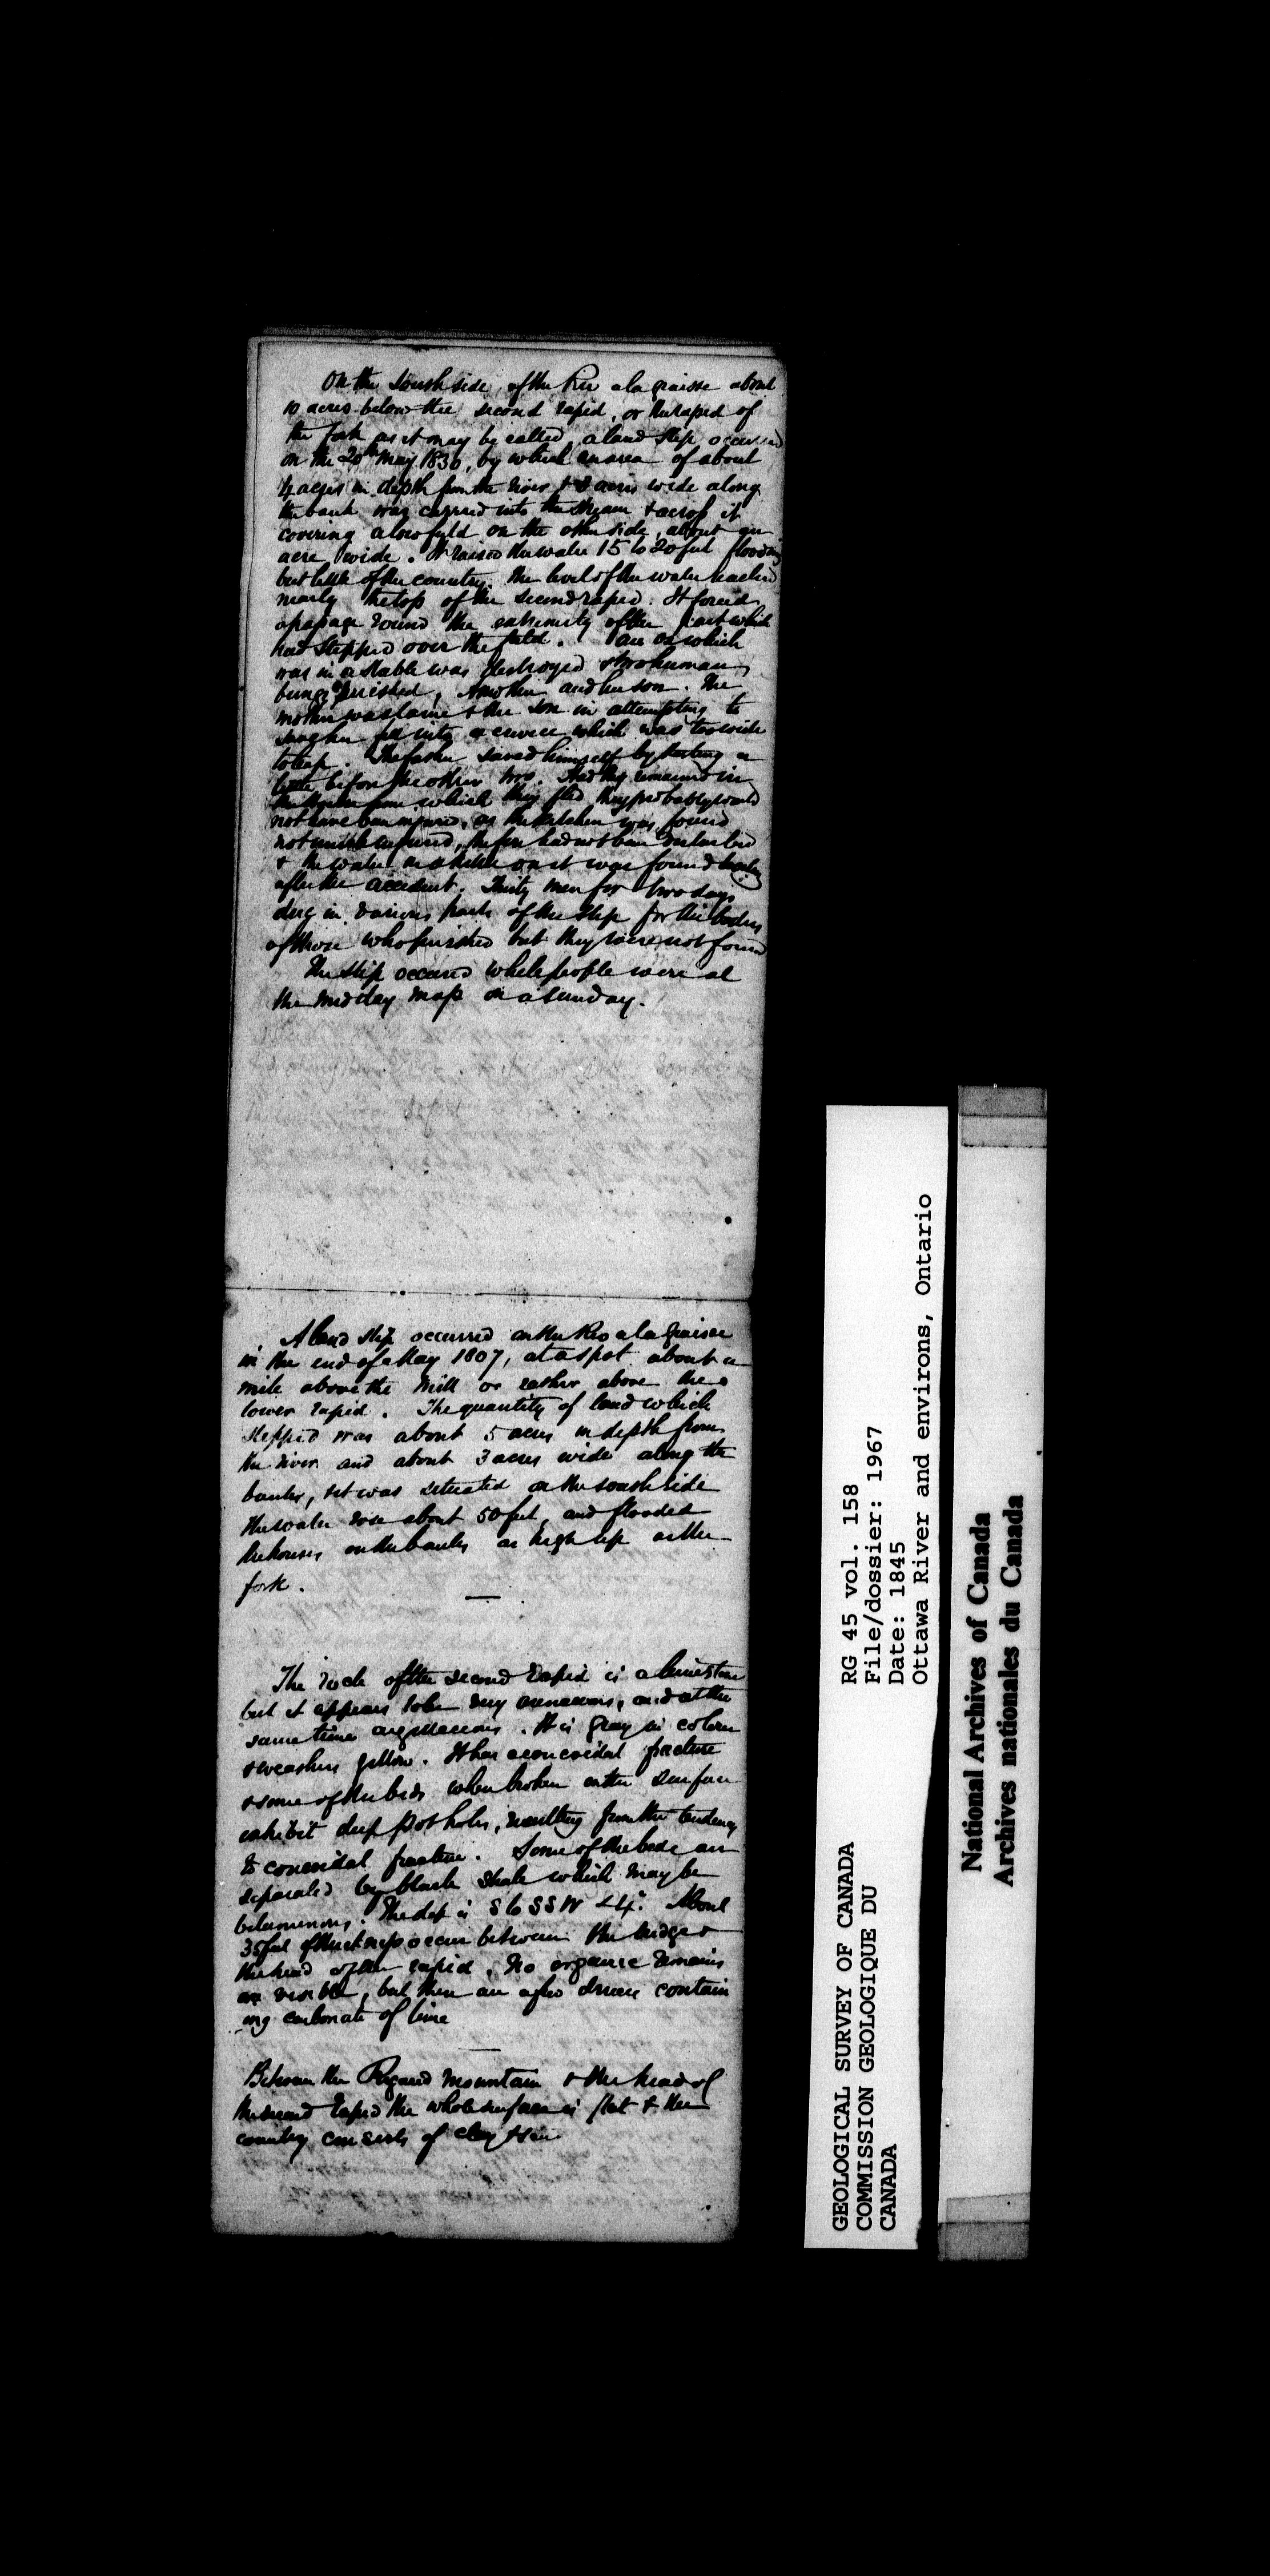 On the South side of the Riv a la graisse about
10 acres below the second rapid, or the rapid of
the fork as it may be called, a land slip occurred
on the 20th May 1830, by which an area of about
4 acres in depth from the river & 3 acres wide along
the bank was carried into the stream & across it
covering a low field on the other side, about an
acre wide. It raised the water 15 to 20 feet flooding
but little of the country. The level of the water reached
nearly the top of the second rapid. It forced
a passage round the extremity of the part which
had slipped over the field. An ox which
was in a stable was destroyed & two human
beings perished, a mother and her son. The
mother was lame & the son in attempting to
save her fell into a crevice which was too wide
to leap. The father saved himself by starting a
little before the other two. Had they remained in
the house from which they fled, they probably would
not have been injured, as the kitchen was found
not much injured, the fire had not been disturbed
& the water in a kettle on it was found boiling
after the accident. Thirty men for two days
dug in various parts of the slip for the bodies
of those who perished but they were not found
The slip occured while people were at
the midday mass on a sunday.
A land slip occurred on the Riv a la Graisse
in the end of May 1807, at a spot about a
mile above the mill or rather above the
lower rapid. The quantity of land which
slipped was about 5 acres in depth from
the river and about 3 acres wide along the
banks, & it was situated on the south side
the water rose about 50 feet, and flooded
the houses on the banks as high up as the
fork.
The rock of the second rapid is a limestone
but it appears to be very arenaceous, and at the
same time argillaceous. It is gray in colour
& weathers yellow. It has a concoidal fracture
& some of the beds when broken on the surface
exhibit deep pot holes, resulting from the tendency
to concoidal fracture. Some of the beds are
separated by black shale which may be
bituminous. The dip is S to SSW <4°. About
35 feet of thickness occur between the bridge &
the head of the rapid. No organic remains
are visible, but there are a few druses contain
ing carbonate of lime
Between the Rigaud Mountain & the head of
the second rapid the whole surface is flat & the
country consists of clay
GEOLOGICAL SURVEY OF CANADA
COMMISSION GEOLOGIQUE DU
CANADA
RG 45 vol. 158
File/dossier: 1967
Date: 1845
Ottawa River and environs, Ontario
National Archives of Canada
Archives nationales du Canada